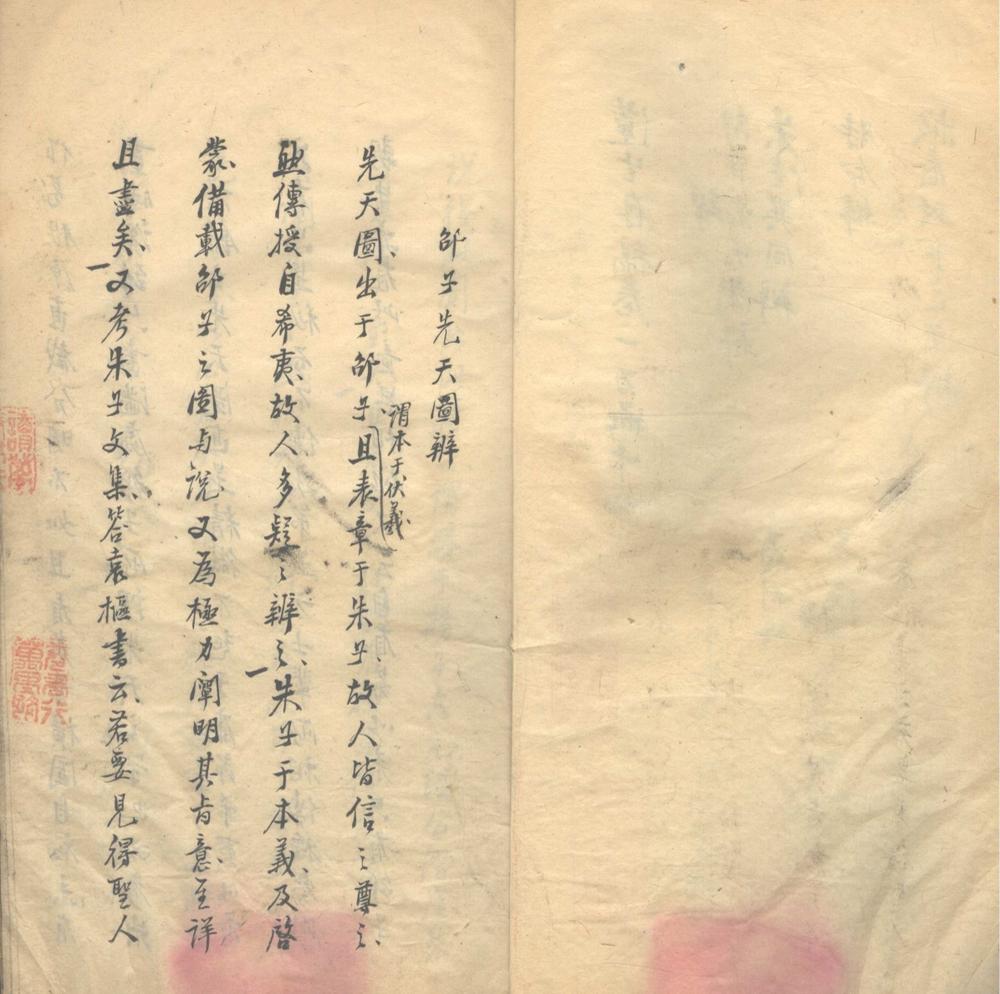 邵子先天圖辨
先天圖出于邵子、且表章于朱子、故人皆信之尊之、
謂本于伏羲
傳授自希夷、故人多疑之辨之、朱子于本義及啓
蒙備載邵子之圖与說、又為極力闡明其旨意、至詳
且盡矣、又考朱子文集、答袁樞書云、若要見得聖人